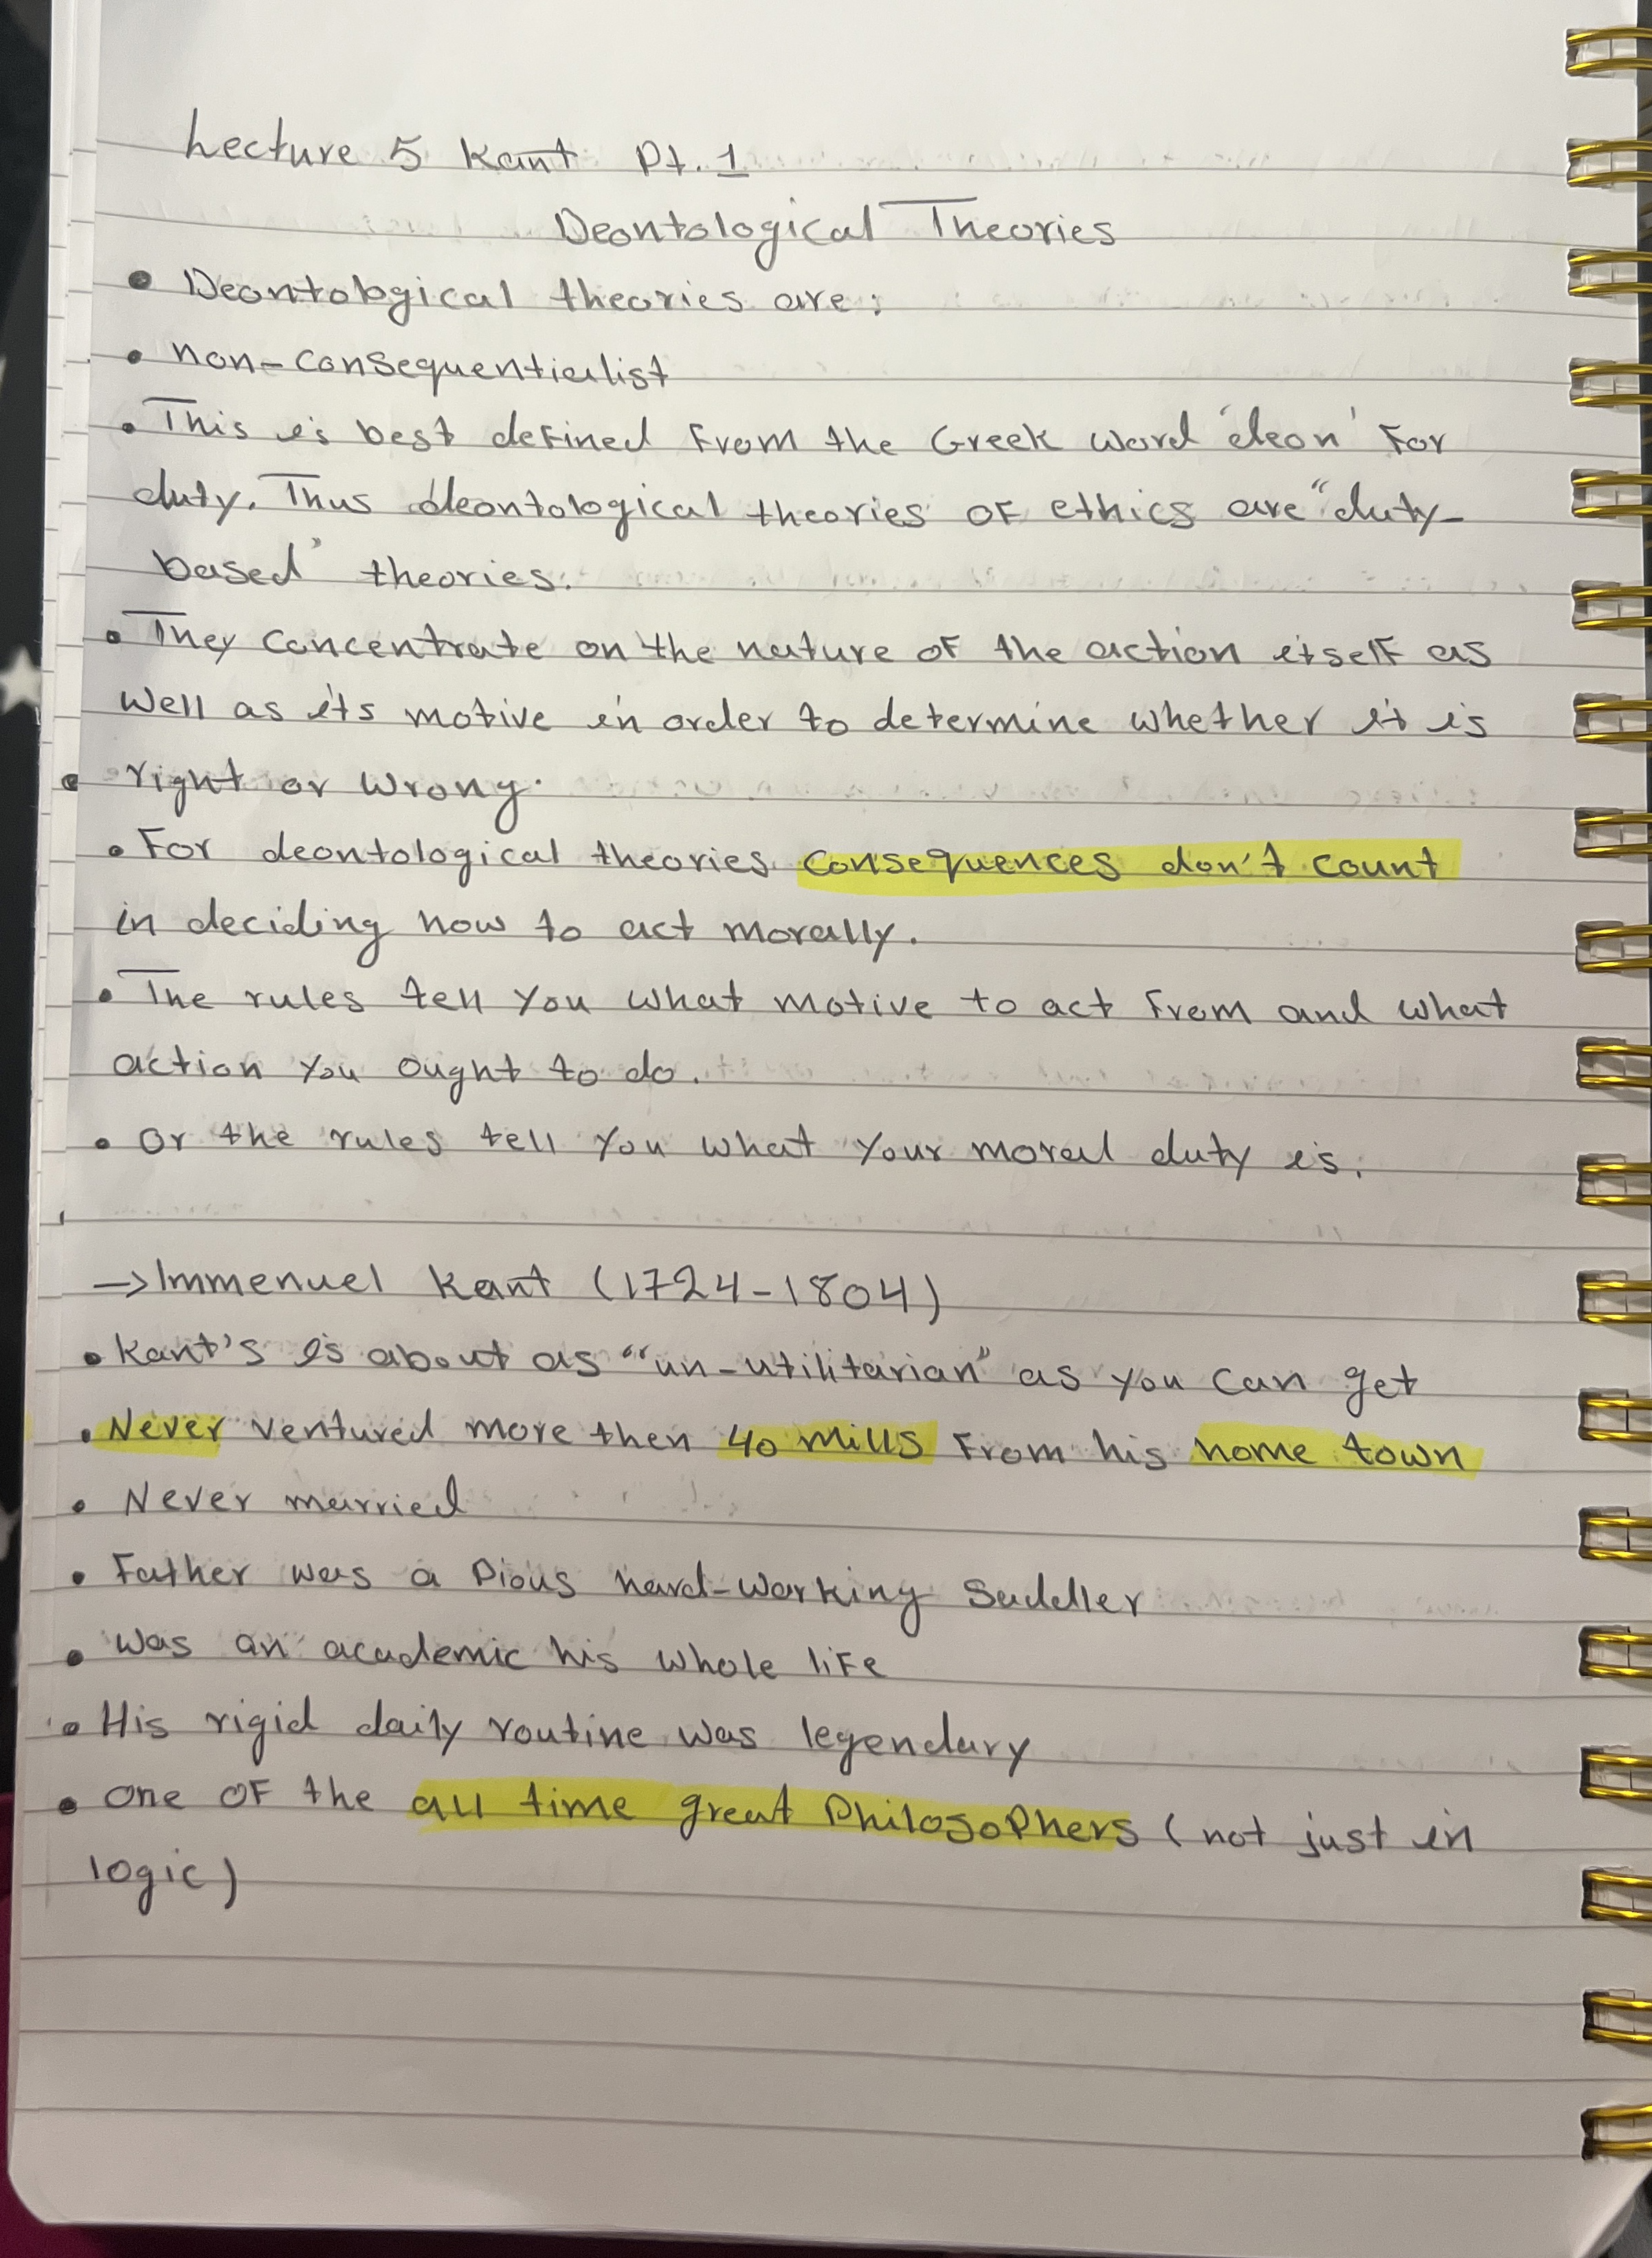 Lecture 5 Kant Pt. 1
Deontological Theories
• Deontological theories are:
• non-consequentialist
• This is best defined from the Greek word 'deon' for
duty. Thus deontological theories of ethics are "duty-
based" theories.
• They concentrate on the nature of the action itself as
well as it's motive in order to determine whether it is
• right or wrong.
• For deontological theories consequences don't count
in deciding how to act morally.
• The rules tell you what motive to act from and what
action you ought to do.
• Or the rules tell you what your moral duty is.
→ Immenuel Kant (1724-1804)
• Kant's is about as "un-utilitarian" as you can get
• Never ventured more then 40 mills from his home town
• Never married
• Father was a pious hard-working Saddler
• was an academic his whole life
• His rigid daily routine was legendary
• one of the all time great Philosophers (not just in
logic)